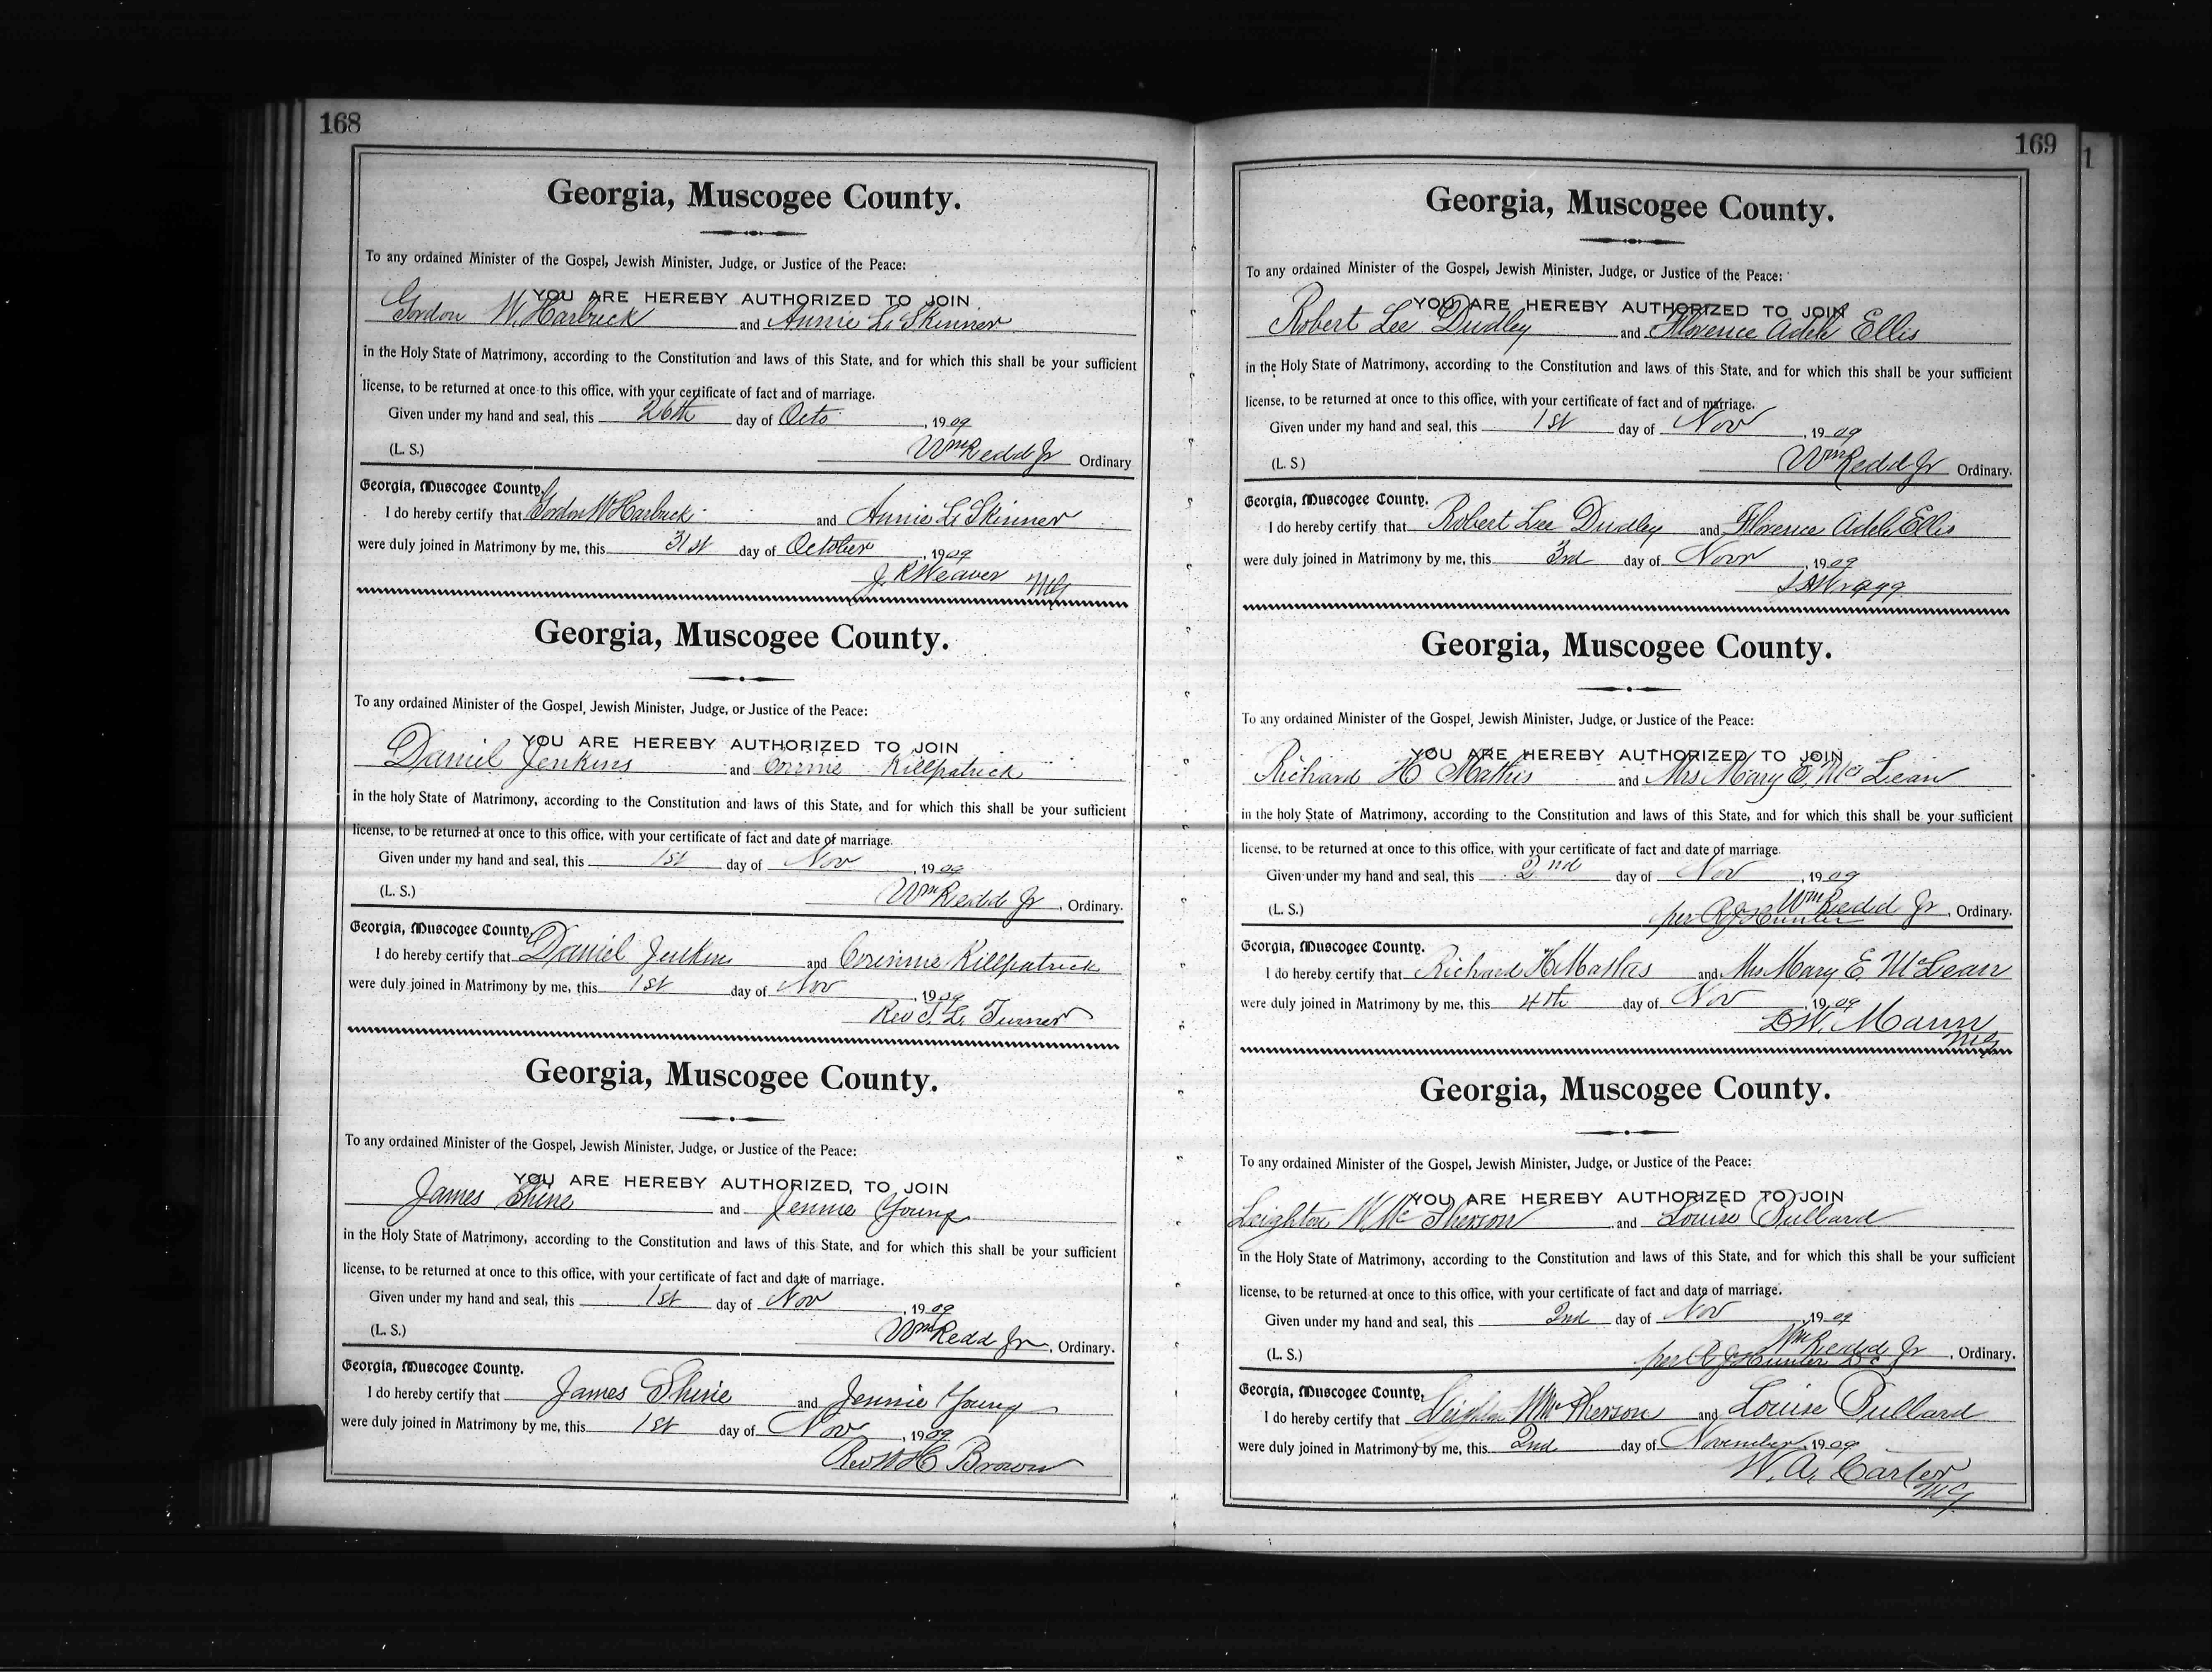 168
Georgia, Muscogee County.
To any ordained Minister of the Gospel, Jewish Minister, Judge, or Justice of the Peace:
YOU ARE HEREBY AUTHORIZED TO JOIN
Gordon W. Harbuck and Annie L. Skinner
in the Holy State of Matrimony, according to the Constitution and laws of this State, and for which this shall be your sufficient
license, to be returned at once to this office, with your certificate of fact and of marriage.
Given under my hand and seal, this 26th day of Octo , 1909
(L. S.) Wm Redd Jr Ordinary
Georgia, Muscogee County.
I do hereby certify that Gordon W Harbuck and Annie L. Skinner
were duly joined in Matrimony by me, this 31st day of October , 1909
J. R Weaver MG
Georgia, Muscogee County.
To any ordained Minister of the Gospel, Jewish Minister, Judge, or Justice of the Peace:
YOU ARE HEREBY AUTHORIZED TO JOIN
Daniel Jenkins and Corrine Killpatrick
in the holy State of Matrimony, according to the Constitution and laws of this State, and for which this shall be your sufficient
license, to be returned at once to this office, with your certificate of fact and date of marriage.
Given under my hand and seal, this 1st day of Nov , 1909
(L. S.) Wm Redd Jr , Ordinary.
Georgia, Muscogee County.
I do hereby certify that Daniel Jenkins and Corinnie Killpatrick
were duly joined in Matrimony by me, this 1st day of Nov , 1909
Rev T. L. Turner
Georgia, Muscogee County.
To any ordained Minister of the Gospel, Jewish Minister, Judge, or Justice of the Peace:
YOU ARE HEREBY AUTHORIZED, TO JOIN
James Shine and Jennie Young
in the Holy State of Matrimony, according to the Constitution and laws of this State, and for which this shall be your sufficient
license, to be returned at once to this office, with your certificate of fact and date of marriage.
Given under my hand and seal, this 1st day of Nov , 1909
(L. S.) Wm Redd Jr , Ordinary.
Georgia, Muscogee County.
I do hereby certify that James Shine and Jennie Young
were duly joined in Matrimony by me, this 1st day of Nov , 1909
Rev W H C Brown
169
Georgia, Muscogee County.
To any ordained Minister of the Gospel, Jewish Minister, Judge, or Justice of the Peace:
YOU ARE HEREBY AUTHORIZED TO JOIN
Robert Lee Dudley and Florence Adele Ellis
in the Holy State of Matrimony, according to the Constitution and laws of this State, and for which this shall be your sufficient
license, to be returned at once to this office, with your certificate of fact and of marriage.
Given under my hand and seal, this 1st day of Nov , 1909
(L. S) Wm Redd Jr Ordinary.
Georgia, Muscogee County.
I do hereby certify that Robert Lee Dudley and Florence Adele Ellis
were duly joined in Matrimony by me, this 3rd day of Novr , 1909
Wragg
Georgia, Muscogee County.
To any ordained Minister of the Gospel, Jewish Minister, Judge, or Justice of the Peace:
YOU ARE HEREBY AUTHORIZED TO JOIN
Richard H Mathis and Mrs Mary E. McLean
in the holy State of Matrimony, according to the Constitution and laws of this State, and for which this shall be your sufficient
license, to be returned at once to this office, with your certificate of fact and date of marriage.
Given under my hand and seal, this 2nd day of Nov , 1909
(L. S.) Wm Redd Jr , Ordinary.
per R J Hunter
Georgia, Muscogee County.
I do hereby certify that Richard H Mathis and Mrs Mary E McLean
were duly joined in Matrimony by me, this 4th day of Nov , 1909
W. Mann
MG
Georgia, Muscogee County.
To any ordained Minister of the Gospel, Jewish Minister, Judge, or Justice of the Peace:
YOU ARE HEREBY AUTHORIZED TO JOIN
Leighton W McPherson and Louise Bullard
in the Holy State of Matrimony, according to the Constitution and laws of this State, and for which this shall be your sufficient
license, to be returned at once to this office, with your certificate of fact and date of marriage.
Given under my hand and seal, this 2nd day of Nov , 1909
(L. S.) Wm Redd Jr , Ordinary.
per R J Hunter
Georgia, Muscogee County.
I do hereby certify that Leighton W McPherson and Louise Bullard
were duly joined in Matrimony by me, this 2nd day of November , 1909
W. A. Carter
MG